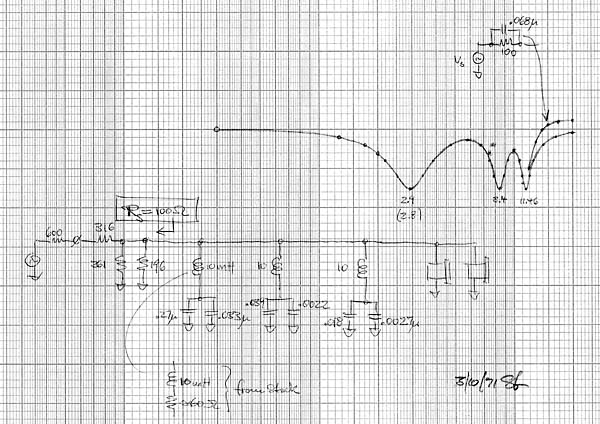 .068μ
100
Vs
2.9
8.4
11.46
(2.8)
R=100Ω
600
316
261
196
10mH
10
10
.27μ
.033μ
.039
.0022
.018
.0027μ
10mH
from stock
3/10/71